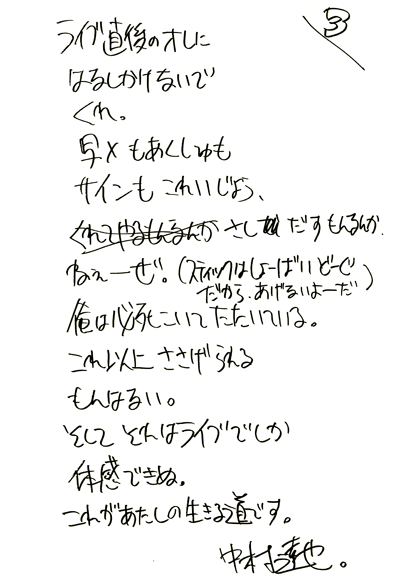 3
ライブ直後のオレに
はなしかけないで
くれ。
写メもあくしゅも
サインもこれいじょう、
くれてやるもんなんか さし だすもんなんか
ねぇーぜ。(スティックはしょーばいどーぐ
だから、あげないよーだ)
俺は必死こいてたたいている。
これ以上ささげられる
もんはない。
そしてそれはライブでしか
体感できぬ。
これがあたしの生きる道です。
中村達也。